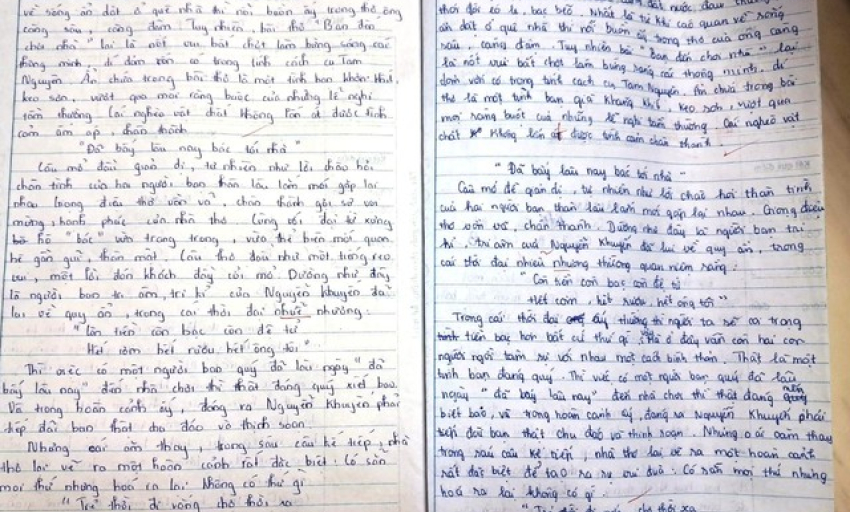 về sống ẩn dật ở quê nhà thì nỗi buồn ấy trong thơ ông
càng sâu, càng đậm. Tuy nhiên, bài thơ "Bạn đến
chơi nhà" lại là nét vui bất chợt làm bừng sáng cái
thông minh, dí dỏm vốn có trong tính cách cụ Tam
Nguyên. Ẩn chứa trong bài thơ là một tình bạn khăng khít,
keo sơn, vượt qua mọi ràng buộc của những lễ nghi
tầm thường. Cái nghèo vật chất không lấn át được tình
cảm ấm áp, chân thành
"Đã bấy lâu nay bác tới nhà"
Câu mở đầu giản dị, tự nhiên như lời chào hỏi
chân tình của hai người bạn thân lâu lắm mới gặp lại
nhau. Giọng điệu thơ vồn vã, chân thành gợi sự vui
mừng, hạnh phúc của nhà thơ. Cùng với đại từ xưng
hô "bác" vừa trang trọng, vừa thể hiện mối quan
hệ gần gũi, thân mật. Câu thơ đầu như một tiếng reo
vui, một lời đón khách đầy cởi mở. Dường như đây
là người bạn tri âm, tri kỉ của Nguyễn Khuyến đã
lui về quy ẩn, trong cái thời đại nhiễu nhương:
"Còn tiền còn bạc còn đệ tử
Hết cơm hết rượu hết ông tôi"
Thì việc có một người bạn quý đã lâu ngày "đã
bấy lâu nay" đến nhà chơi thì thật đáng quý biết bao.
Và trong hoàn cảnh ấy, đáng ra Nguyễn Khuyến phải
tiếp đãi bạn thật chu đáo và thịnh soạn.
Nhưng oái oăm thay, trong sáu câu kế tiếp, nhà
thơ lại vẽ ra một hoàn cảnh rất đặc biệt. Có sẵn
mọi thứ nhưng hoá ra lại không có thứ gì
"Trẻ thời đi vắng chợ thời xa
thời đói
ẩn dật ở quê nhà thì nỗi buồn ấy trong thơ của ông càng
sâu, càng đậm. Tuy nhiên bài "Bạn đến chơi nhà" lại
là nốt vui bất chợt làm bừng sáng cái thông minh, dí
dỏm vốn có trong tính cách cụ Tam Nguyên. Ẩn chứa trong bài
thơ là một tình bạn quá khăng khít, keo sơn, vượt qua
mọi ràng buộc của những lễ nghi tầm thường. Cái nghèo vật
chất không lấn át được tình cảm chân thành.
"Đã bấy lâu nay bác tới nhà"
Câu mở đề giản dị, tự nhiên như lời chào hỏi thân tình
của hai người bạn thân lâu lắm mới gặp lại nhau. Giọng điệu
thơ vồn vã, chân thành. Dường như đây là người bạn tri
kỉ, tri âm của Nguyễn Khuyến đã lui về quy ẩn, trong
cái thời đại nhiễu nhương thường quan niệm rằng:
"Còn tiền còn bạc còn đệ tử
Hết cơm, hết rượu, hết ông tôi"
Trong cái thời đại ấy thường thì người ta sẽ coi trọng
tiền bạc hơn bất cứ thứ gì. Mà ở đây vẫn còn hai con
người ngồi tâm sự với nhau một cách bình thản. Thật là một
tình bạn đáng quý. Thì việc có một người bạn quý đã lâu
ngày "đã bấy lâu nay" đến nhà chơi thì thật đáng quý
biết bao, và trong hoàn cảnh ấy, đáng ra Nguyễn Khuyến phải
tiếp đãi bạn thật chu đáo và thịnh soạn. Nhưng oái oăm thay
trong sáu câu kế tiếp, nhà thơ lại vẽ ra một hoàn cảnh
rất đặt biệt để tạo ra sự vui đùa. Có sẵn mọi thứ nhưng
hoá ra lại không có gì.
"Trẻ đi chợ thời xa